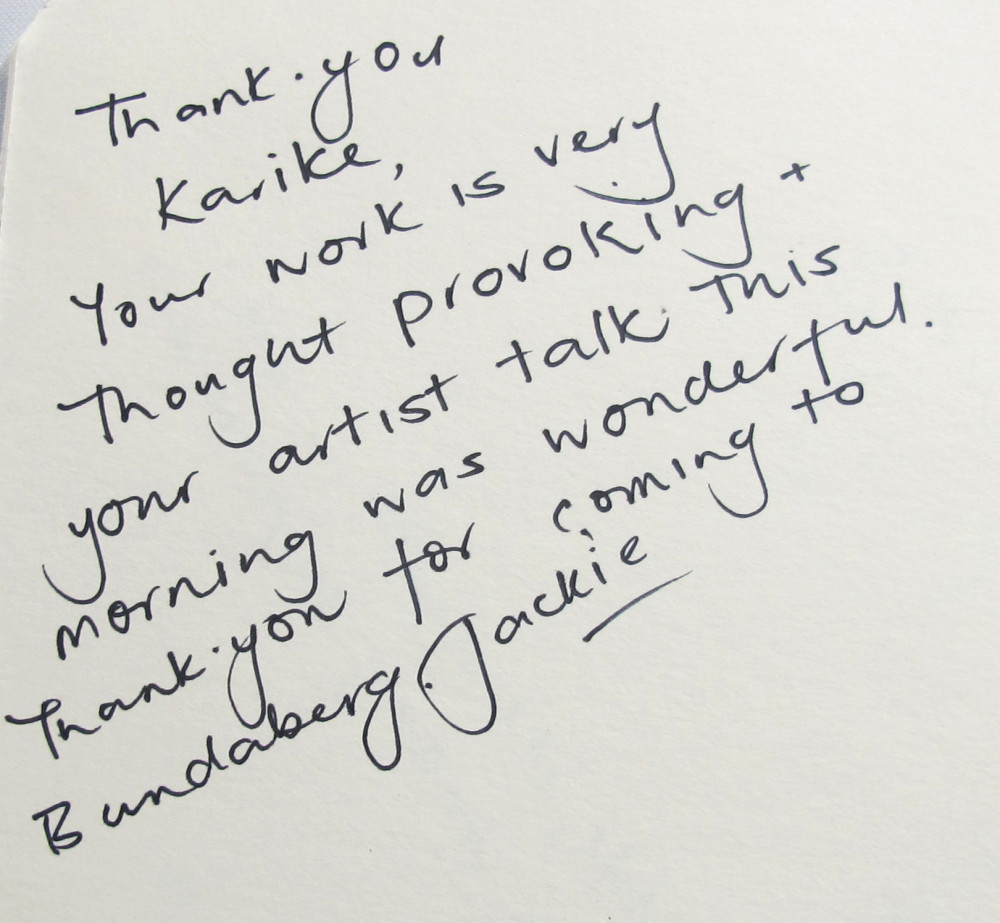 Thank.you
Karike,
Your work is very
thought provoking +
your artist talk this
morning was wonderful.
Thank.you for coming to
Bundaberg. Jackie